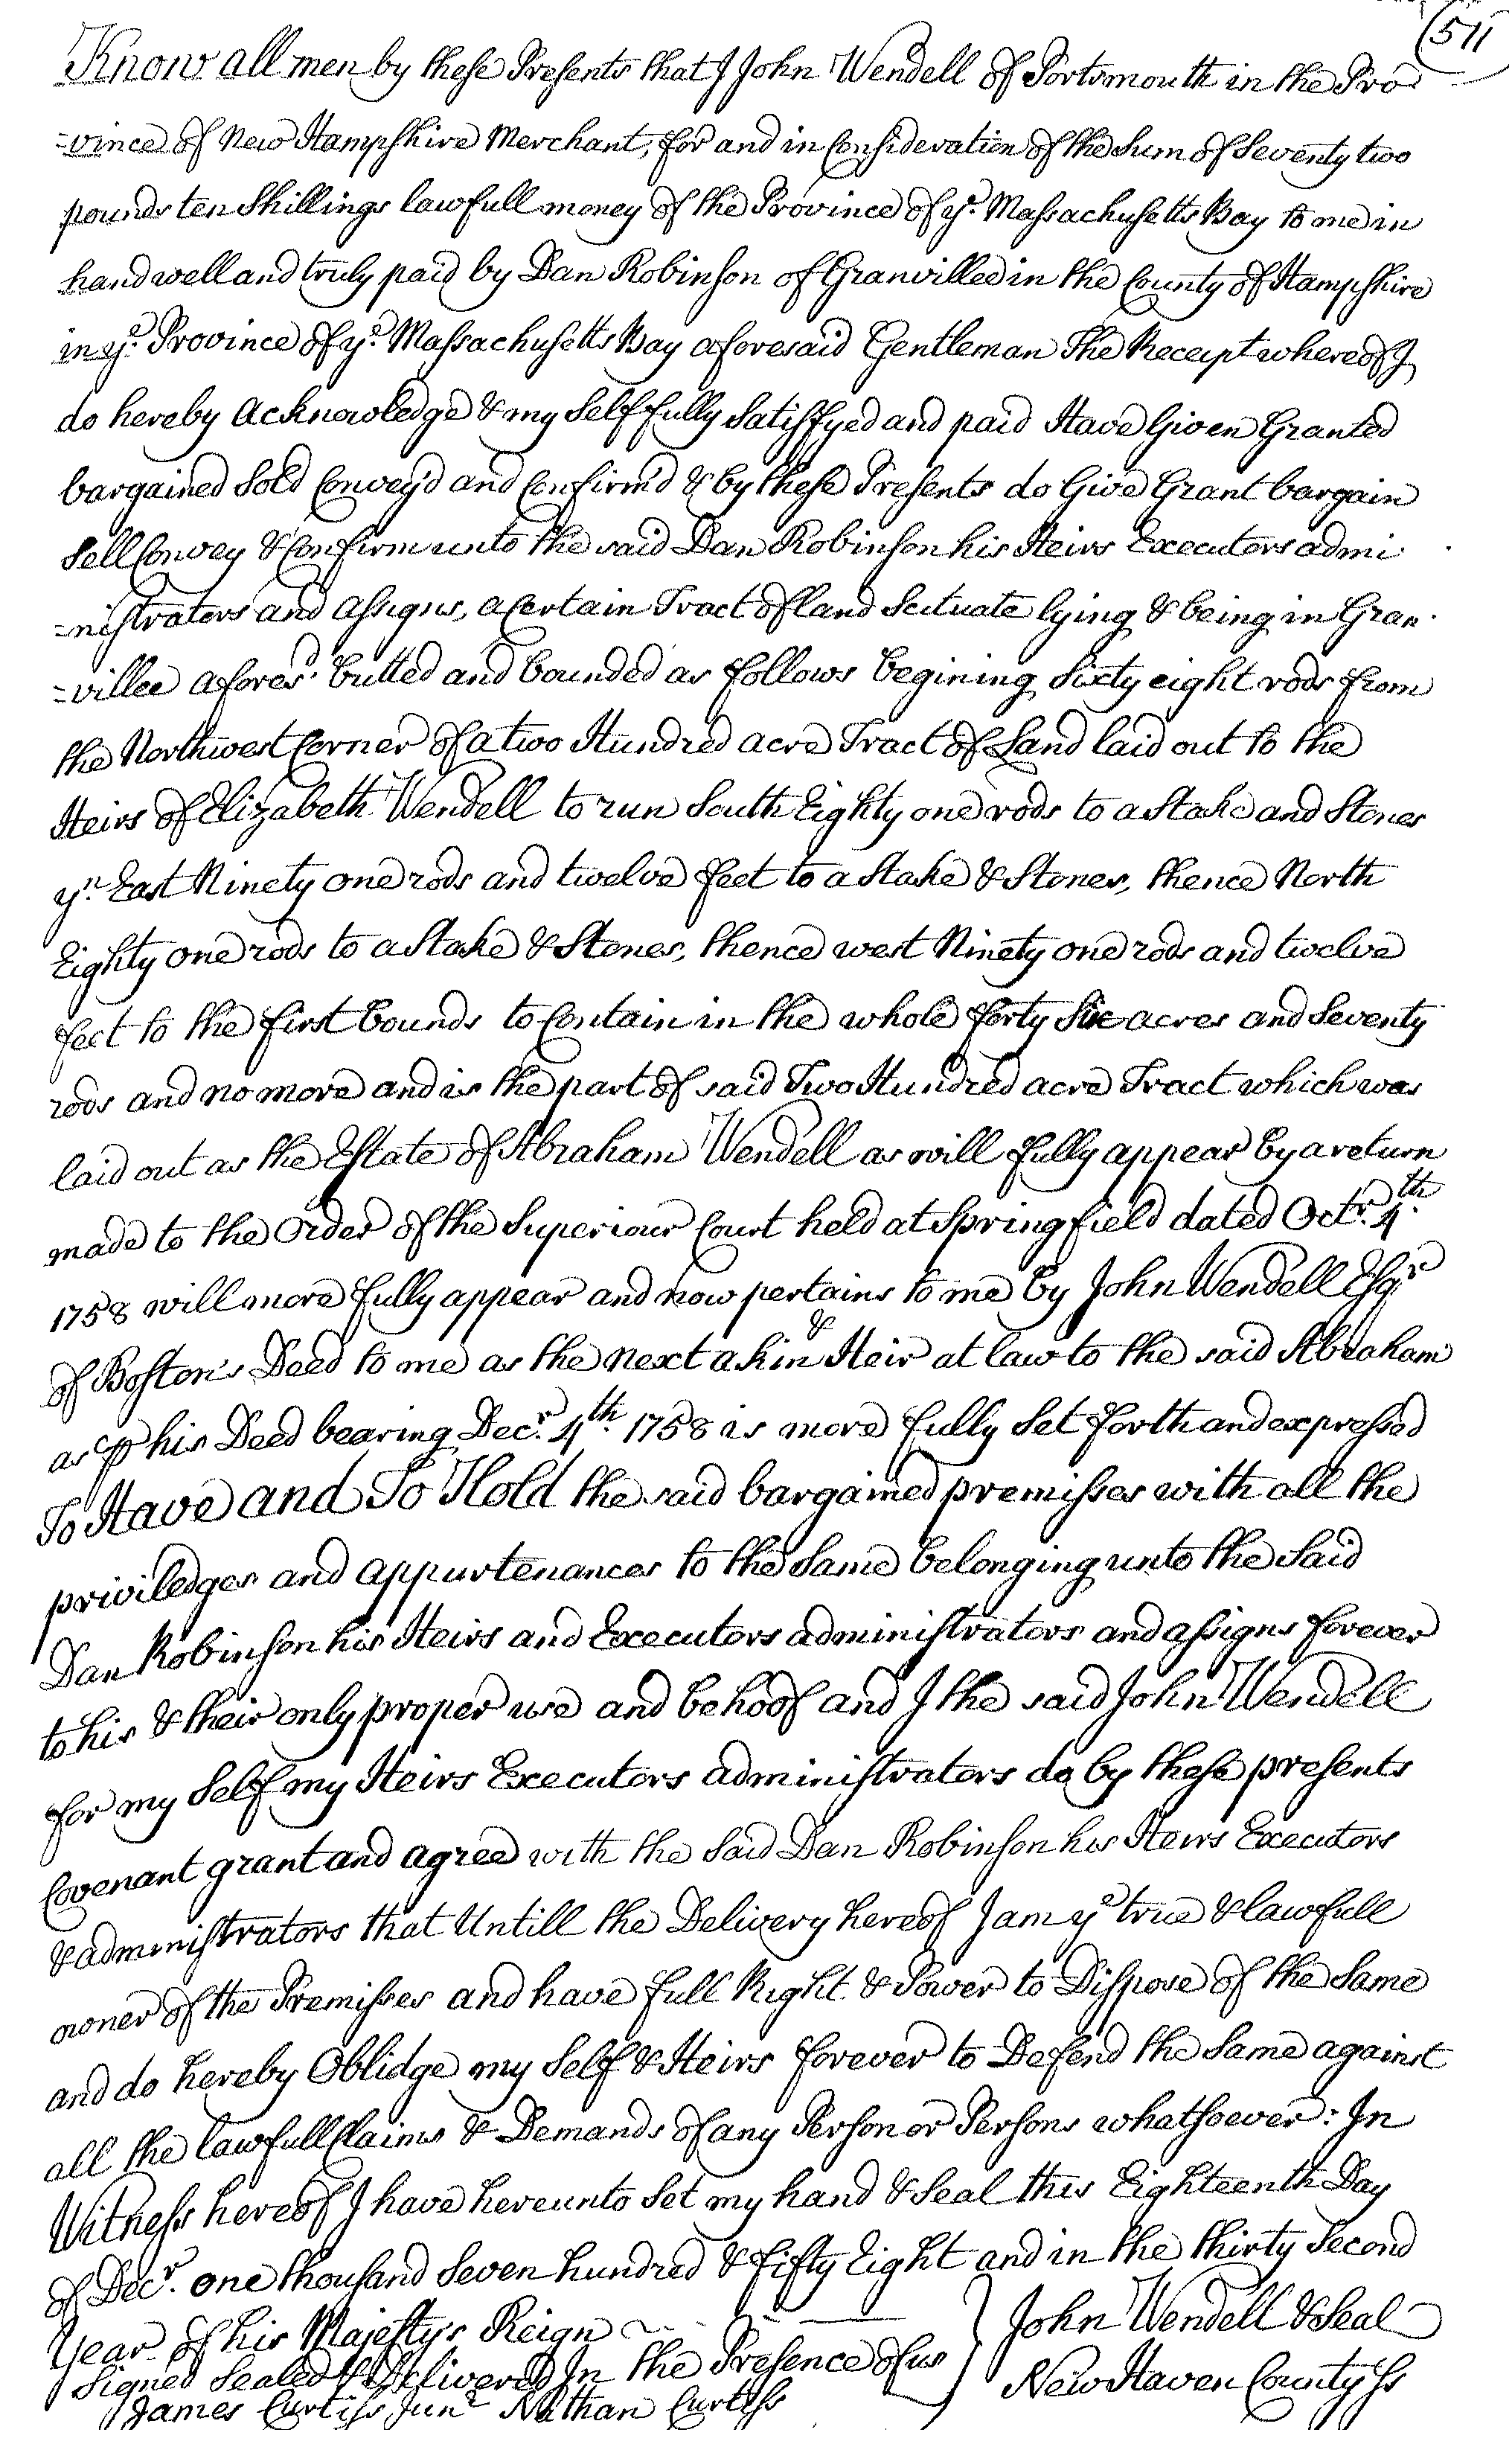 (511
Know all men by these Presents that I John Wendell of Portsmouth in the Pro
=vince of New Hampshire Merchant, for and in Consideration of the Sum of Seventy two
pounds ten Shillings lawfull money of the Province of ye. Massachusetts Bay to me in
hand well and truly paid by Dan Robinson of Granville in the County of Hampshire
in ye. Province of ye. Massachusetts Bay aforesaid Gentleman The Receipt whereof I
do hereby Acknowledge & my Self fully Satisfyed and paid Have Given Granted
bargained Sold Convey'd and Confirm'd & by these Presents do Give Grant bargain
Sell Convey & Confirm unto the said Dan Robinson his Heirs Executors admi
=nistrators and assigns, a Certain Tract of land Scituate lying & being in Gran
=ville aforesd. butted and bounded as follows begining Sixty eight rods from
the Northwest Corner of a two Hundred acre Tract of Land laid out to the
Heirs of Elizabeth Wendell to run South Eighty one rods to a Stake and Stones
yn. East Ninety one rods and twelve feet to a Stake & Stones, thence North
Eighty one rods to a Stake & Stones, thence west Ninety one rods and twelve
feet to the first bounds to Contain in the whole forty Six acres and Seventy
rods and no more and is the part of said Two Hundred acre Tract which was
laid out as the Estate of Abraham Wendell as will fully appear by a return
made to the Order of the Superiour Court held at Springfield dated Octr. 4th.
1758 will more fully appear and now pertains to me by John Wendell Esqr
of Boston's Deed to me as the next akin & Heir at law to the said Abraham
as P his Deed bearing Decr. 4th. 1758 is more fully Set forth and expressed
To Have and To Hold the said bargained premisses with all the
priviledges and appurtenances to the Same belonging unto the Said
Dan Robinson his Heirs and Executors administrators and assigns forever
to his & their only proper use and behoof and I the said John Wendell
for my Self my Heirs Executors administrators do by these presents
Covenant grant and agree with the Said Dan Robinson his Heirs Executors
& administrators that Untill the Delivery hereof I am ye true & lawfull
owner of the Premisses and have full Right & Power to Dispose of the Same
and do hereby Oblidge my Self & Heirs forever to Defend the Same against
all the lawfull Claims & Demands of any Person or Persons whatsoever: In
Witness hereof I have hereunto Set my hand & Seal this Eighteenth Day
of Decr. one thousand Seven hundred & fifty Eight and in the thirty Second
Year of his Majestys Reign
John Wendell & Seal
Signed Sealed & Delivered In the Presence of us
New Haven County Ss
James Curtiss Junr Nathan Curtiss